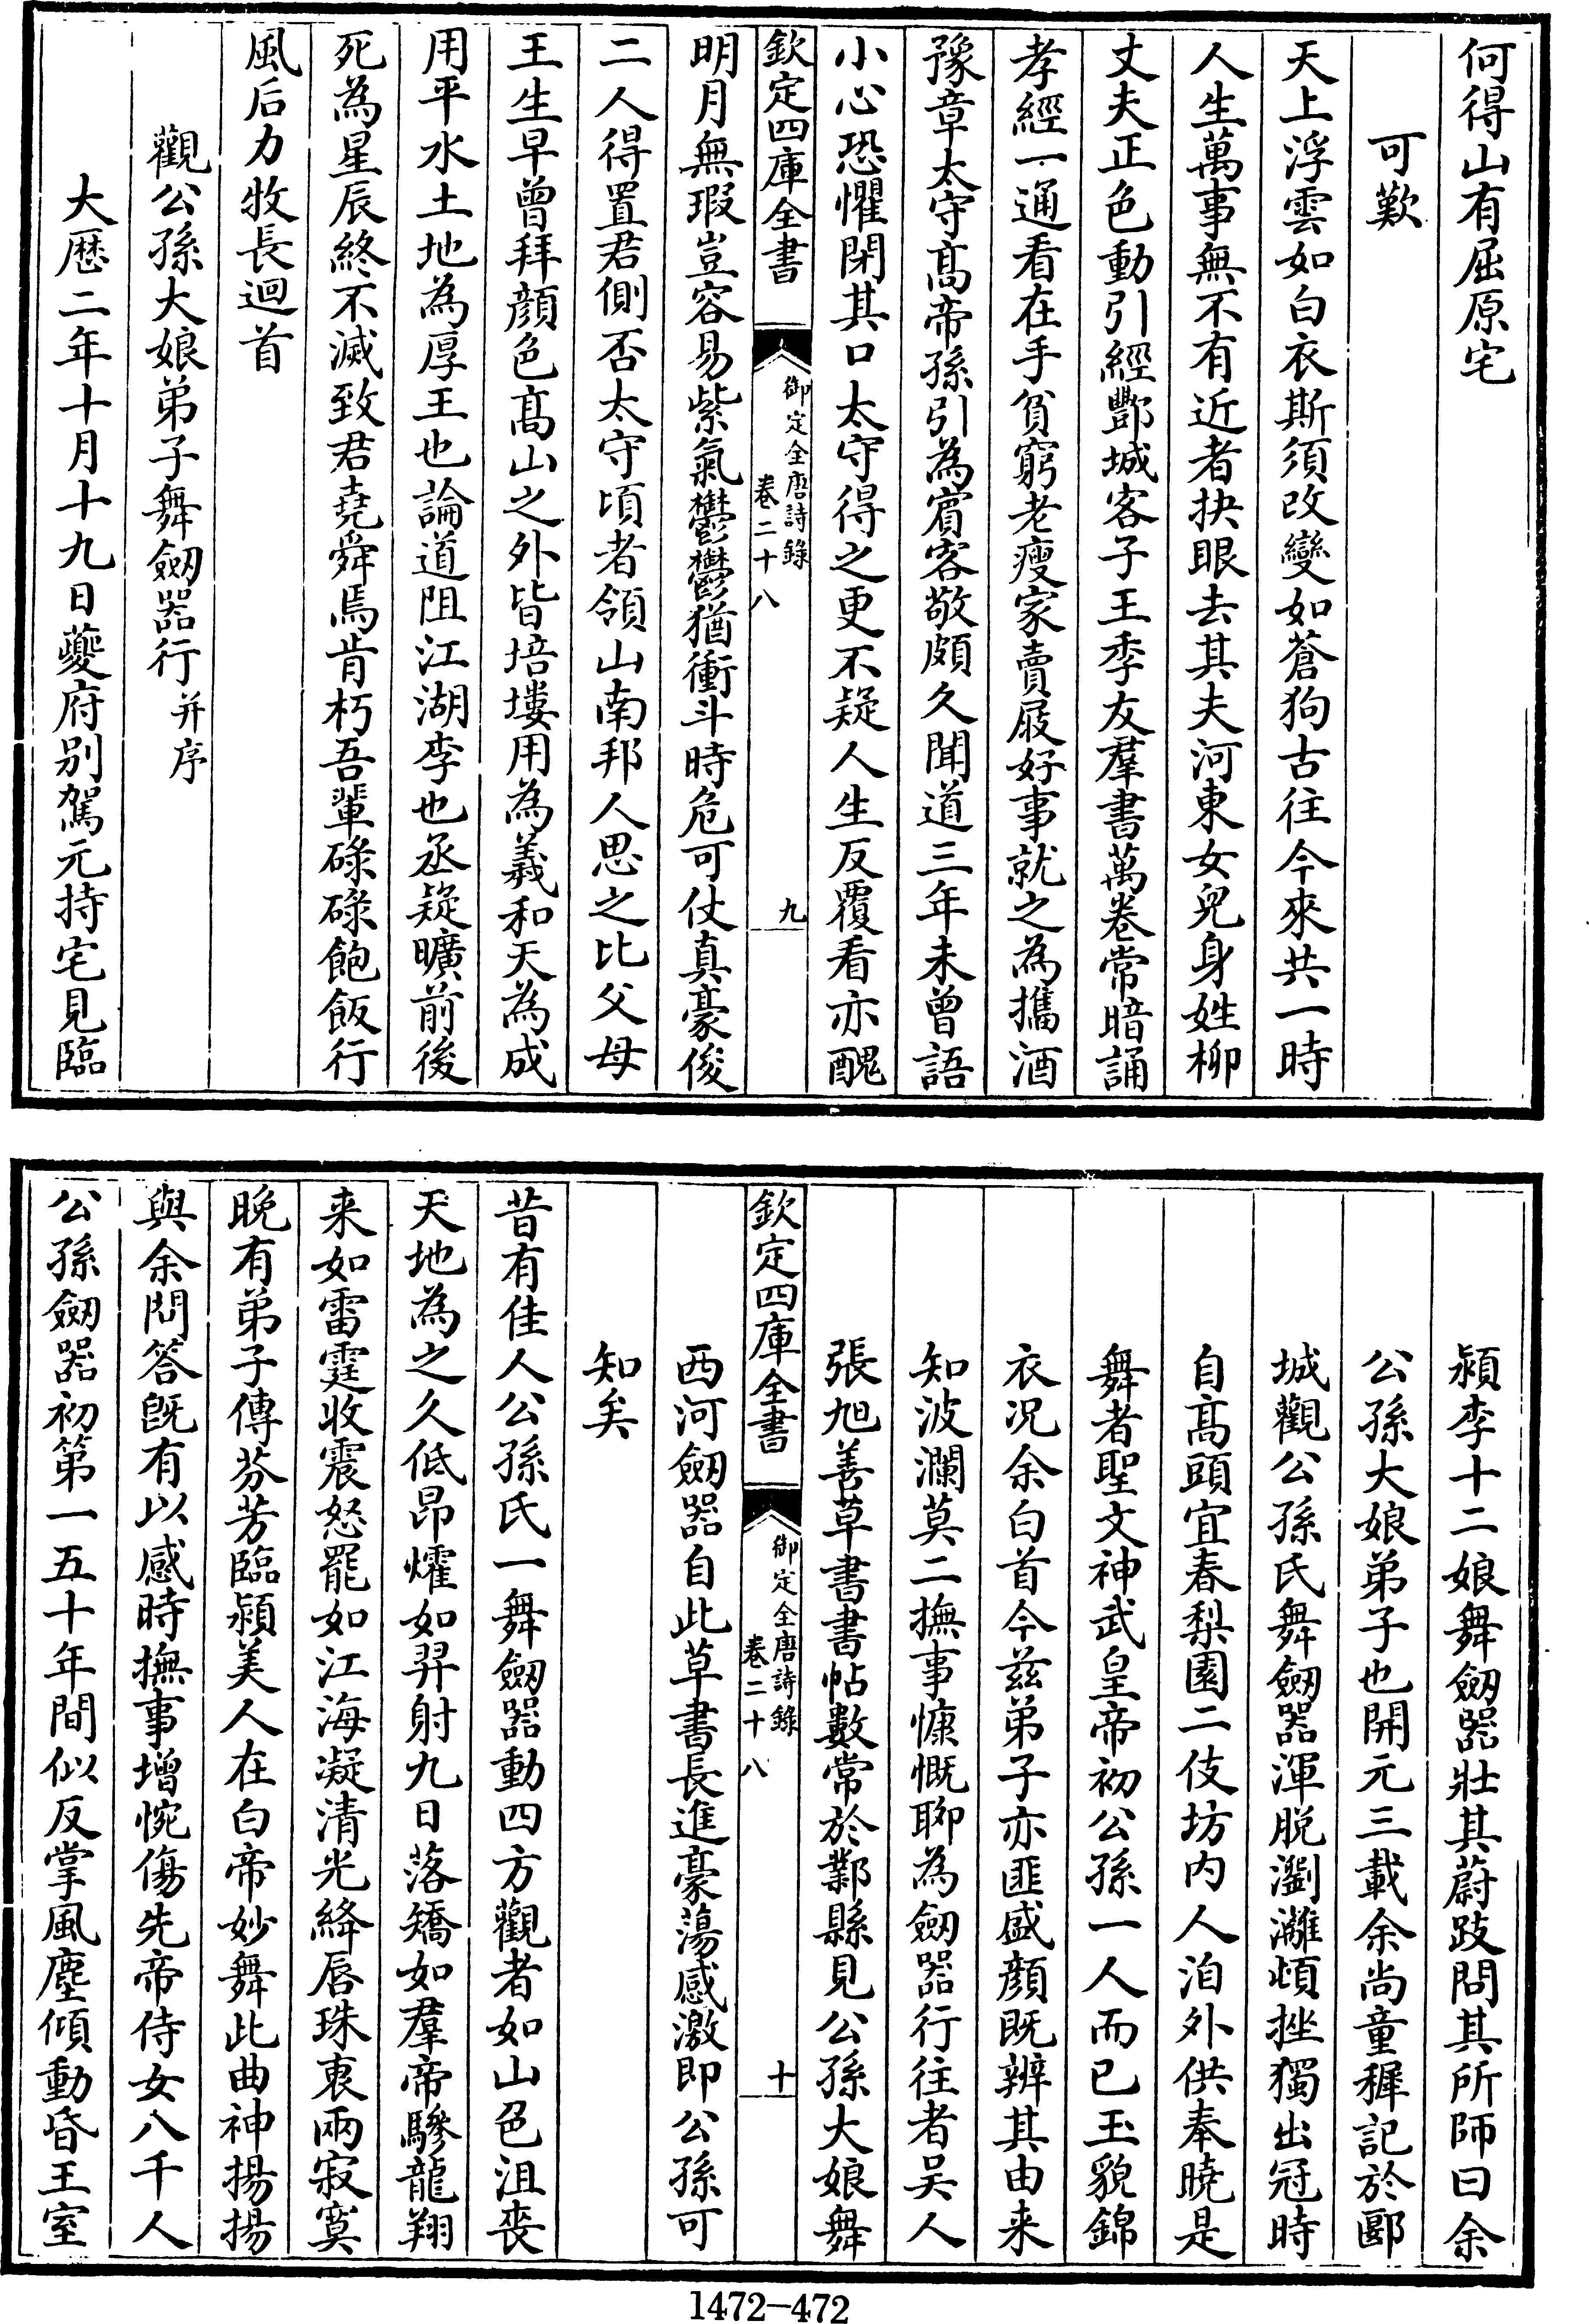 何得山有屈原宅
可歎
天上浮雲如白衣斯須改變如蒼狗古往今來共一時
人生萬事無不有近者抉眼去其夫河東女兒身姓柳
丈夫正色動引經酆城客子王季友羣書萬卷常暗誦
孝經一通看在手貧窮老瘦家賣屐好事就之為攜酒
豫章太守髙帝孫引為賓客敬頗久聞道三年未曾語
小心恐懼閉其口太守得之更不疑人生反覆看亦醜
欽定四庫全書
御定全唐詩錄
卷二十八
九
明月無瑕豈容易紫氣鬱鬱猶衝斗時危可仗真豪俊
二人得置君側否太守頃者領山南邦人思之比父母
王生早曾拜顔色髙山之外皆培塿用為羲和天為成
用平水土地為厚王也論道阻江湖李也丞疑曠前後
死為星辰終不滅致君堯舜焉肯朽吾輩碌碌飽飯行
風后力牧長迴首
觀公孫大娘弟子舞劒器行并序
大厯二年十月十九日夔府别駕元持宅見臨
潁李十二娘舞劒器壯其蔚跂問其所師曰余
公孫大娘弟子也開元三載余尚童穉記於郾
城觀公孫氏舞劒器渾脱瀏灕頓挫獨出冠時
自髙頭宜春梨園二伎坊内人洎外供奉曉是
舞者聖文神武皇帝初公孫一人而已玉貌錦
衣况余白首今兹弟子亦匪盛顔既辨其由来
知波瀾莫二撫事慷慨聊為劒器行往者吴人
張旭善草書書帖數常於鄴縣見公孫大娘舞
欽定四庫全書
御定全唐詩錄
卷二十八
十
西河劒器自此草書長進豪蕩感激即公孫可
知矣
昔有佳人公孫氏一舞劒器動四方觀者如山色沮喪
天地為之久低昂㸌如羿射九日落矯如羣帝驂龍翔
来如雷霆收震怒罷如江海凝清光絳唇珠䄂兩寂寞
晚有弟子傳芬芳臨潁美人在白帝妙舞此曲神揚揚
與余問答旣有以感時撫事增惋傷先帝侍女八千人
公孫劒器初第一五十年間似反掌風塵傾動昏王室
1472-472